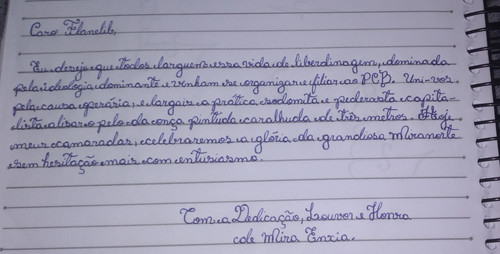 Caro Flanelib,
Eu desejo que todos larguem essa vida de liberdinagem, dominada
pela ideologia dominante e venham se organizar e filiar ao PCB. Uni-vos
pela causa operária, e largais a prática sodomita e pederasta capita-
lista alisar o pelo da onça pintuda caralhuda de três metros. Hoje
meus camaradas, celebraremos a glória da grandiosa Miranorte
sem hesitação mais com entusiasmo.
Com a Dedicação, Louvor e Honra
de Mira Enxia.